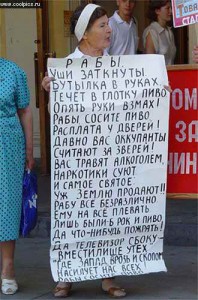 www.coolpics.ru
РАБЫ.
УШИ ЗАТКНУТЫ
БУТЫЛКА В РУКАХ.
ТЕЧЁТ В ГЛОТКУ ПИВО
ОПЯТЬ РУКИ ВЗМАХ!
РАБЫ СОСИТЕ ПИВО.
РАСПЛАТА У ДВЕРЕЙ!
ДАВНО ВАС ОККУПАНТЫ
СЧИТАЮТ ЗА ЗВЕРЕЙ!
ВАС ТРАВЯТ АЛКОГОЛЕМ,
НАРКОТИКИ СУЮТ
И САМОЕ СВЯТОЕ
УЖ ЗЕМЛЮ ПРОДАЮТ!!
РАБУ ВСЕ БЕЗРАЗЛИЧНО
ЕМУ НА ВСЕ ПЛЕВАТЬ
ЛИШЬ БЫЛ Б РОК И ПИВО,
ДА ЧТО-НИБУДЬ ПОЖРАТЬ!
ДА ТЕЛЕВИЗОР СБОКУ-
ВМЕСТИЛИЩЕ УТЕХ
ГДЕ ЗАПАД ВРОЗЬ И СКОПОМ
НАСИЛУЕТ НАС ВСЕХ.
РАБЫ СОСИТЕ ПИВО
ТОВА